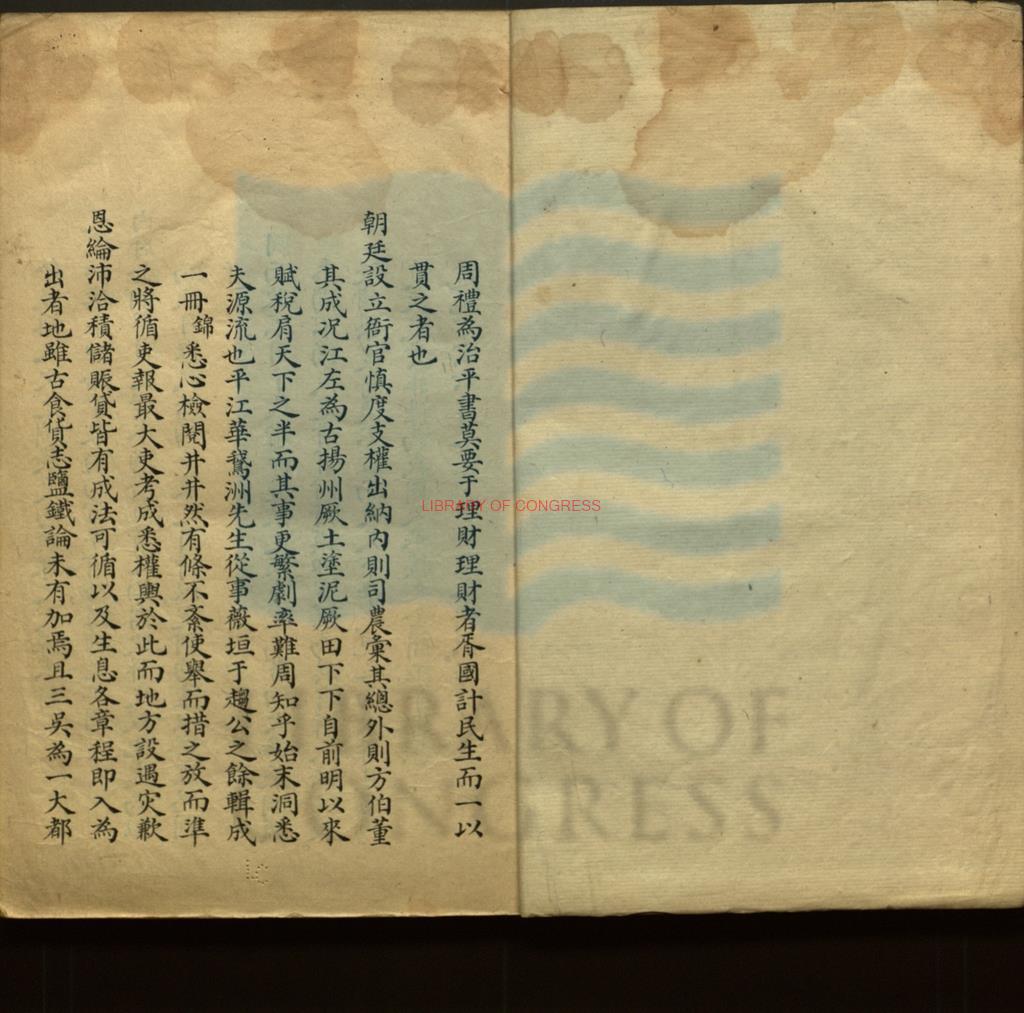 周禮為治平書莫要于理財理財者胥國計民生而一以
貫之者也
朝廷設立衙官慎度支權出納內則司農彙其總外則方伯董
其成况江左為古揚州厥土塗泥厥田下下自前明以來
賦稅肩天下之半而其事更繁劇率難周知乎始末洞悉
夫源流也平江華鵞洲先生從事薇垣于趨公之餘輯成
一冊錦悉心檢閱井井然有條不紊使舉而措之放而準
之將循吏報最大吏考成悉權輿於此而地方設遇灾歉
恩綸沛洽積儲賑貸皆有成法可循以及生息各章程即入為
出者地雖古食貨志鹽鐵論未有加焉且三吳為一大都
LIBRARY OF CONGRESS
LIBRARY OF
CONGRESS